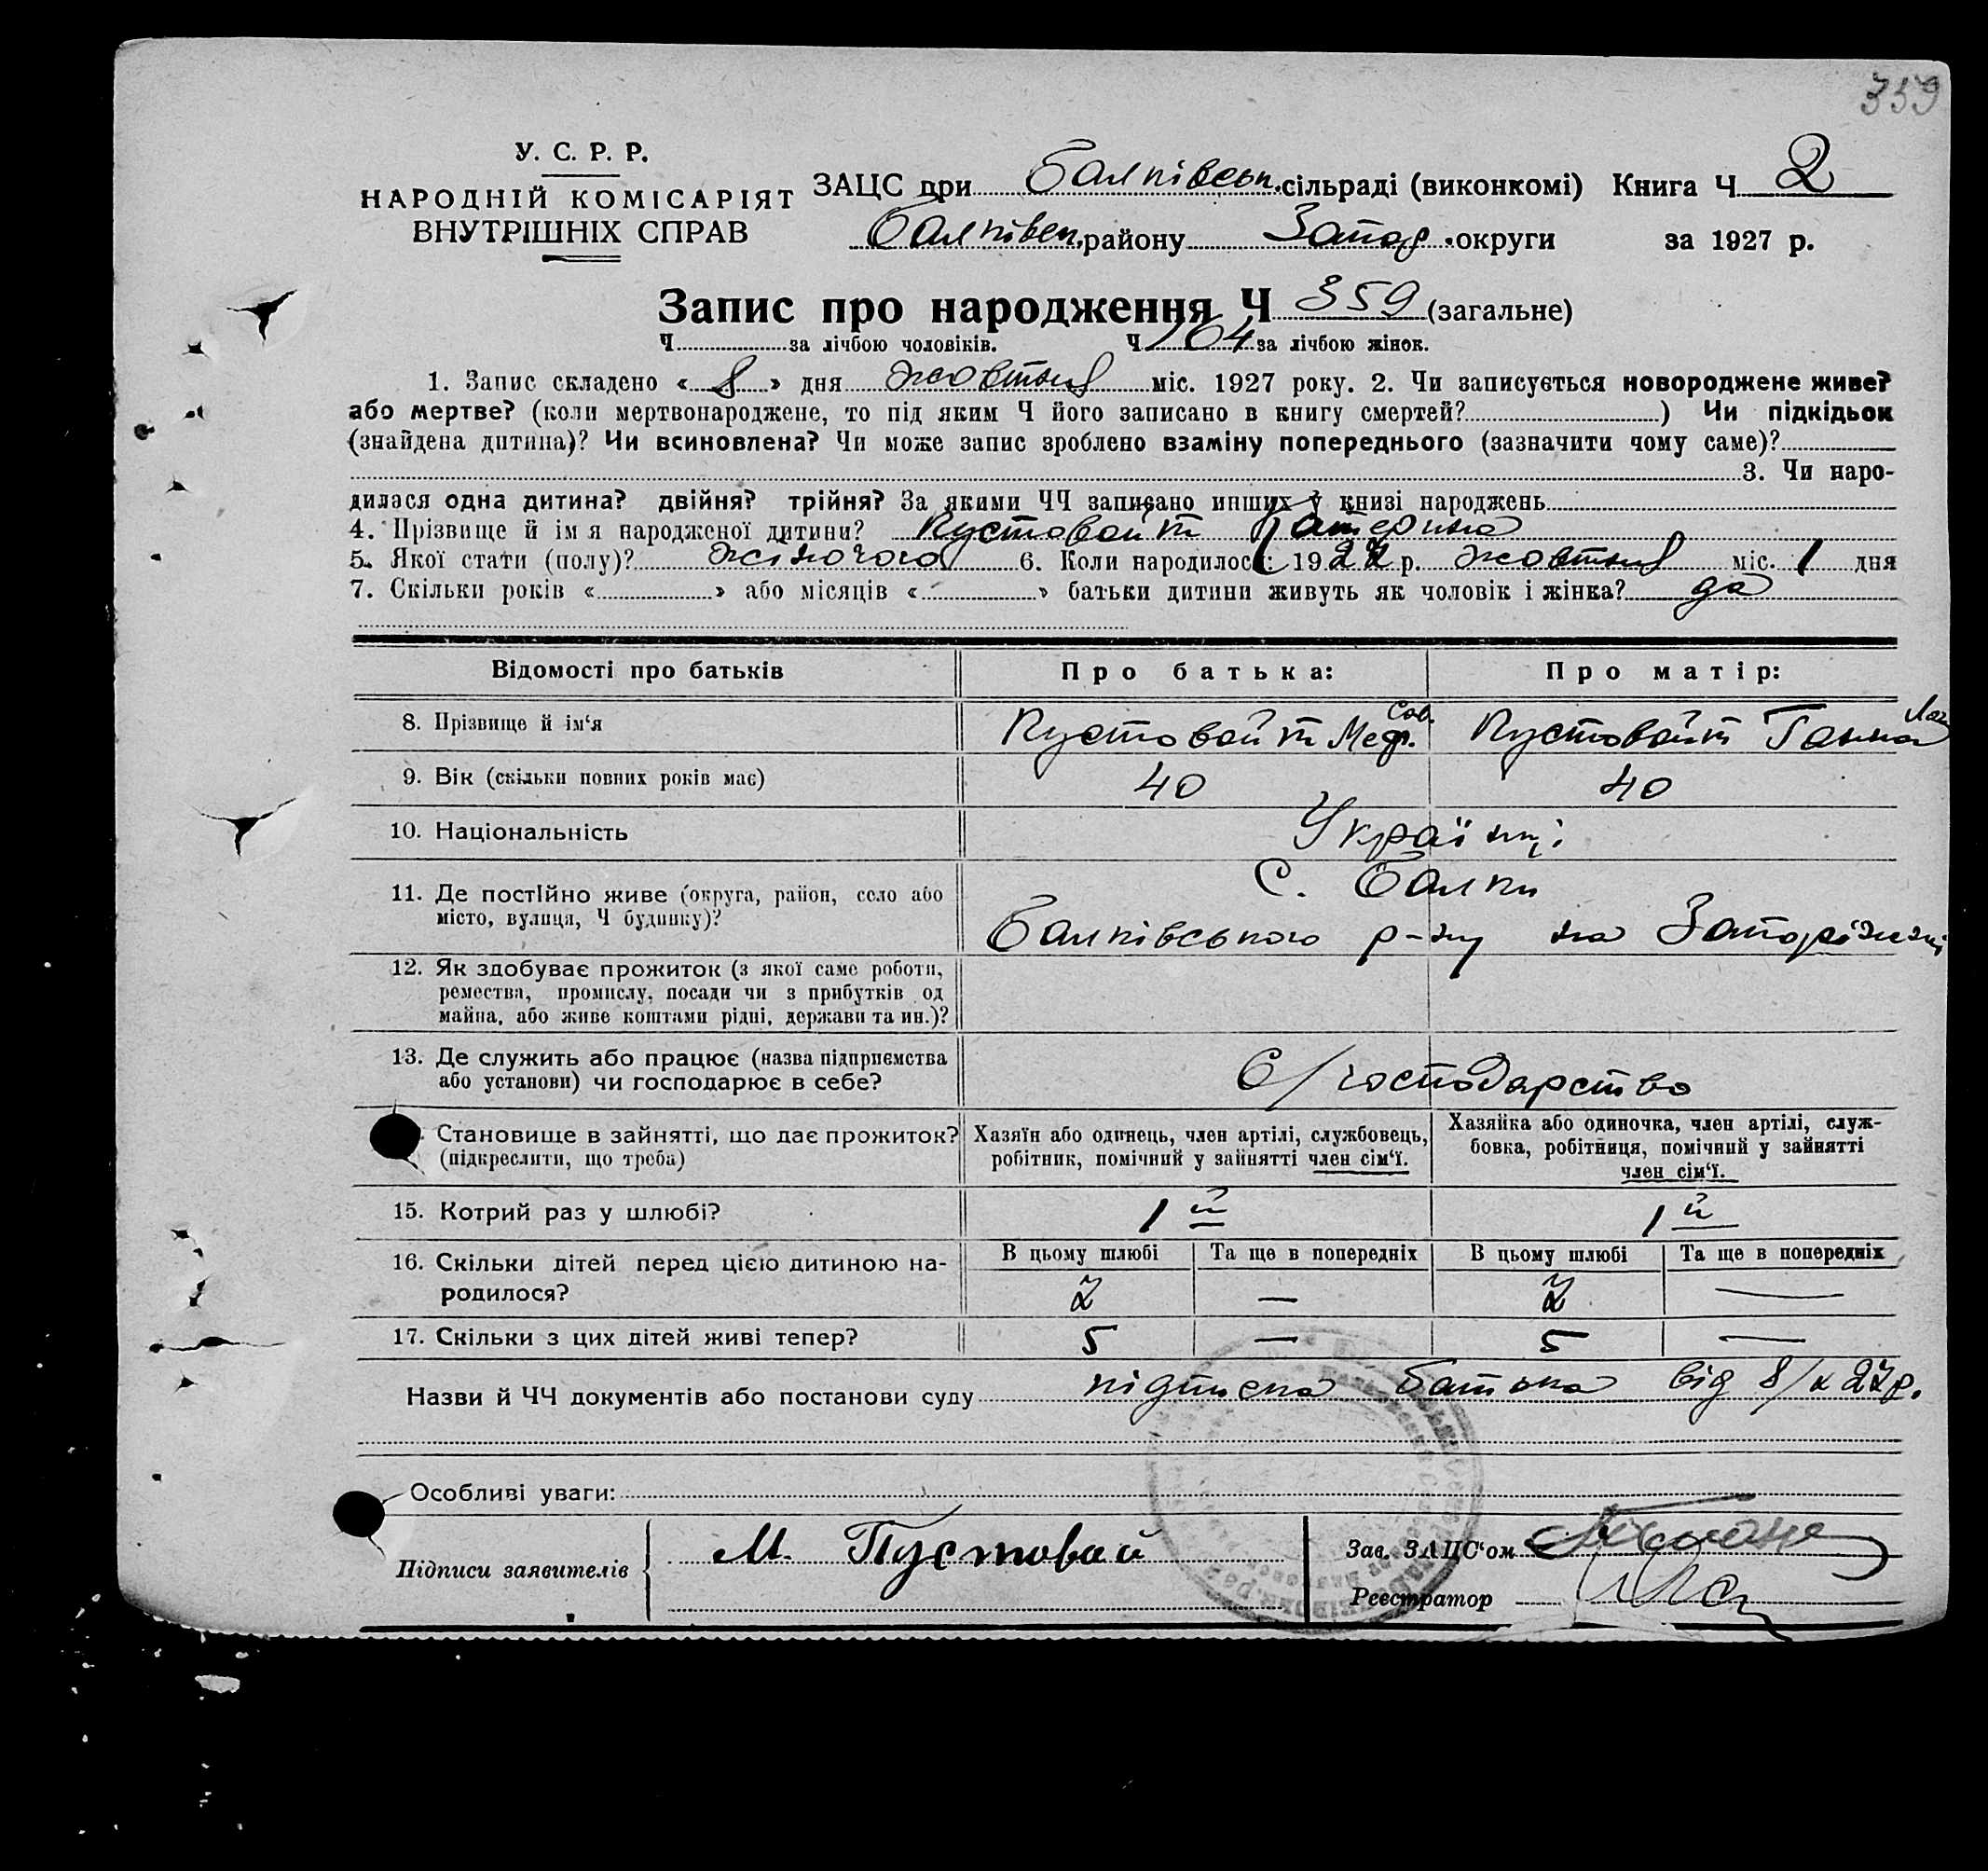 359
У. С. Р. Р.
НАРОДНІЙ КОМІСАРІЯТ
ВНУТРІШНІХ СПРАВ
ЗАЦС при Балківськ. сільраді (виконкомі) Книга Ч 2
Балківск. району Запор. округи за 1927 р.
Запис про народження Ч 359 (загальне)
Ч за лічбою чоловіків. Ч 164 за лічбою жінок.
1. Запис складено « 8 » дня жовтня міс. 1927 року. 2. Чи записується новороджене живе?
або мертве? (коли мертвонароджене, то під яким Ч його записано в книгу смертей? ) Чи підкідьок
(знайдена дитина)? Чи всиновлена? Чи може запис зроблено взаміну попереднього (зазначити чому саме)?
3. Чи наро-
дилася одна дитина? двійня? трійня? За якими ЧЧ записано инших у книзі народжень
4. Прізвище й ім я народженої дитини? Пустовойт Катерина
5. Якої стати (полу)? жіночого 6. Коли народилося: 1927 р. жовтня міс. 1 дня
7. Скільки років « » або місяців « » батьки дитини живуть як чоловік і жінка? да
Відомості про батьків Про батька: Про матір:
8. Прізвище й ім‘я Пустовойт Меф. Сав. Пустовойт Ганна
9. Вік (скільки повних років має) 40 40
10. Національність Українці
11. Де постійно живе (округа, район, село або
місто, вулиця, Ч будинку)?
С. Балки
Балківського р-ну на Запоріжжі
12. Як здобуває прожиток (з якої саме роботи,
ремества, промислу, посади чи з прибутків од
майна, або живе коштами рідні, держави та ин.)?
13. Де служить або працює (назва підприємства
або установи) чи господарює в себе?
С/господарство
Становище в зайнятті, що дає прожиток?
(підкреслити, що треба)
Хазяїн або одинець, член артілі, службовець,
робітник, помічний у зайнятті член сім‘ї.
Хазяйка або одиночка, член артілі, служ-
бовка, робітниця, помічний у зайнятті
член сім‘ї.
15. Котрий раз у шлюбі? 1й 1й
16. Скільки дітей перед цією дитиною на-
родилося?
В цьому шлюбі Та ще в попередніх В цьому шлюбі Та ще в попередніх
7 — 7 —
17. Скільки з цих дітей живі тепер? 5 — 5 —
Назви й ЧЧ документів або постанови суду підписка батька від 8/X 27 р.
Особливі уваги:
Підписи заявителів М. Пустовой
Зав. ЗАЦС‘ом
Реєстратор